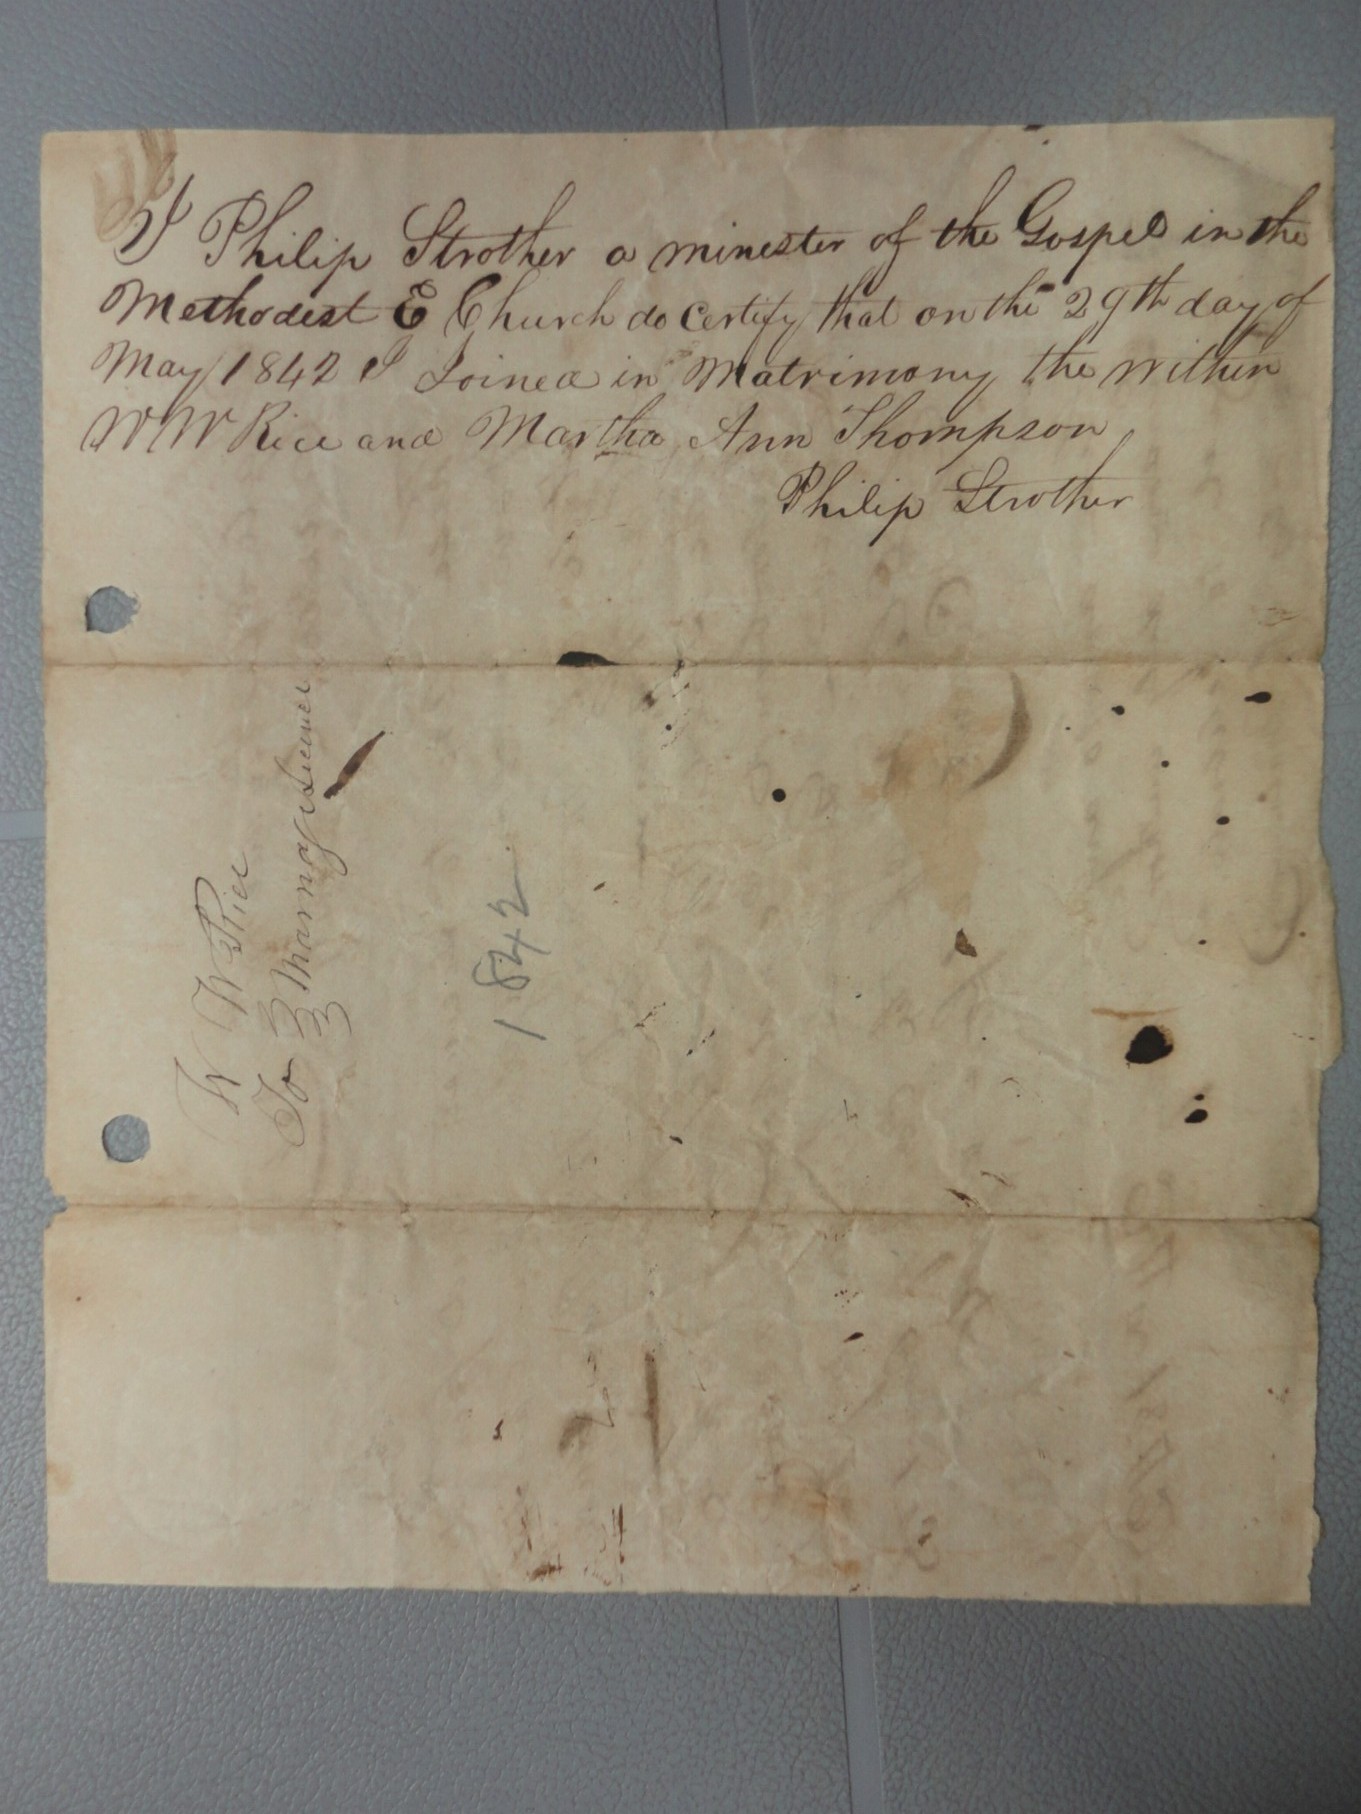 I Philip Strother a minester of the Gospel in the
Methodest E Church do certify that on the 29th day of
May 1842 I Joined in Matrimony the within
W W Rice and Martha Ann Thompson
Philip Strother
W W Rice
To
Marriage Licence
1842